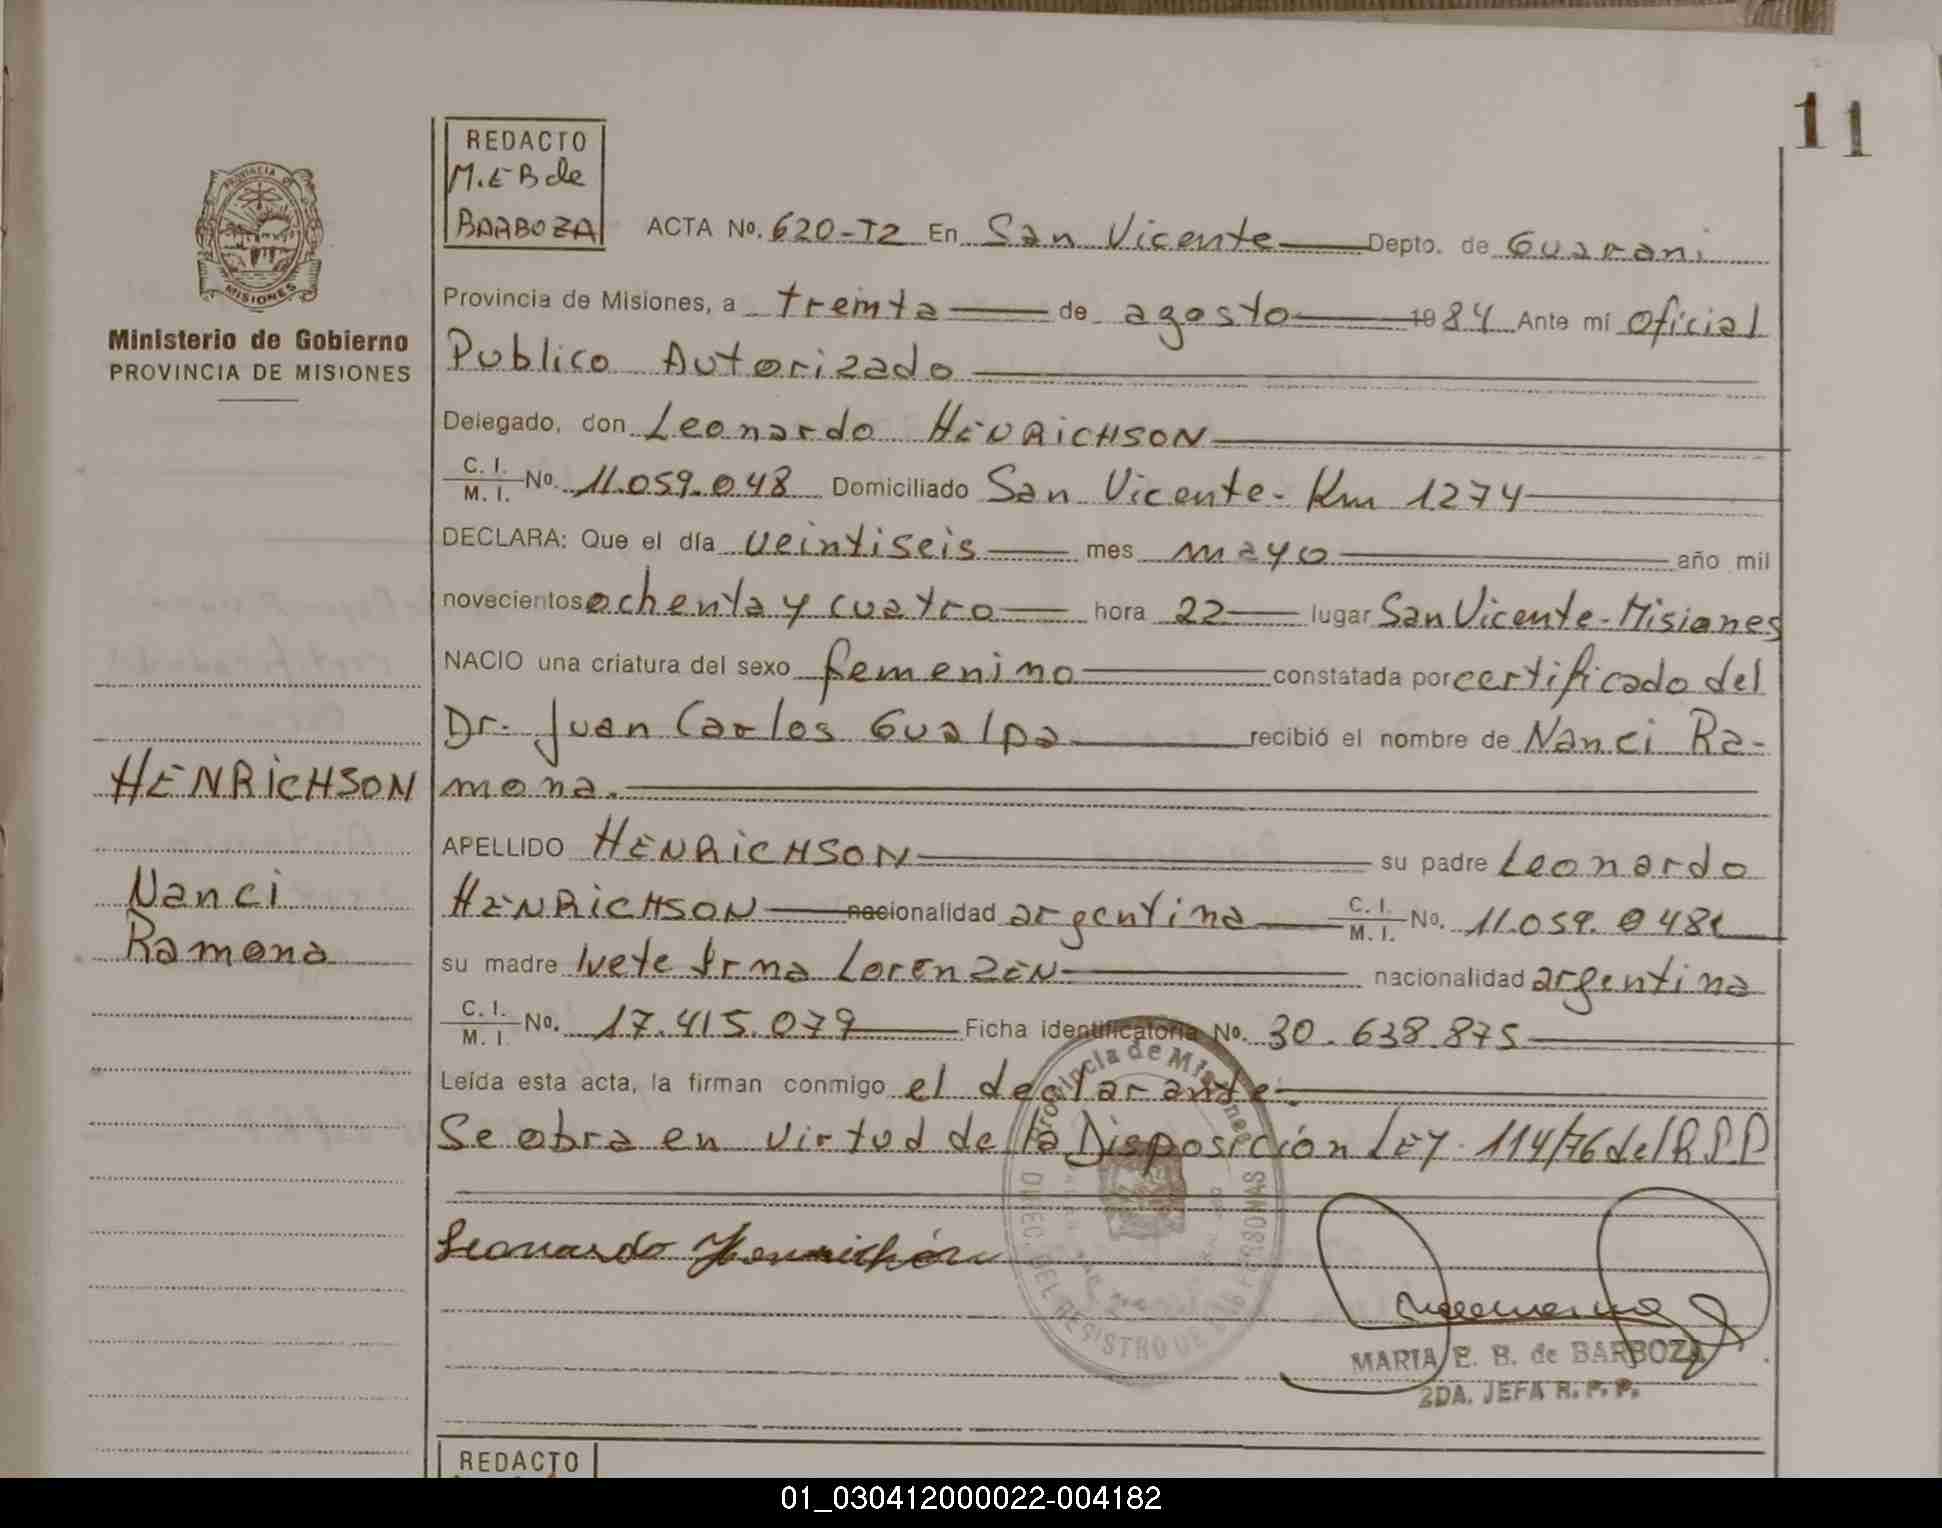 11
REDACTO
M.E B de
BARBOZA
ACTA No. 620-T2 En San Vicente Depto. de Guarani
PROVINCIA DE MISIONES
Ministerio de Gobierno
PROVINCIA DE MISIONES
Provincia de Misiones, a treinta de agosto 1984 Ante mí Oficial
Publico Autorizado
Delegado, don Leonardo HENRICHSON
C. I. M. I. No. 11.059.048 Domiciliado San Vicente - Km 1274
DECLARA: Que el día veintiseis mes mayo año mil
novecientos ochenta y cuatro hora 22 lugar San Vicente - Misiones
NACIO una criatura del sexo femenino constatada por certificado del
Dr. Juan Carlos Gualpa recibió el nombre de Nanci Ra-
mona.
HENRICHSON
APELLIDO HENRICHSON su padre Leonardo
Nanci
HENRICHSON nacionalidad argentina C. I. M. I. No. 11.059.048
Ramona
su madre Ivete Irma LORENZEN nacionalidad argentina
C. I. M. I. No. 17.415.079 Ficha identificatoria No. 30.638.875
Leída esta acta, la firman conmigo el declarante.
Se obra en virtud de la Disposición LEY 114/76 del R.P.P
Provincia de Misiones
DIREC. DEL REGISTRO DE LAS PERSONAS
Leonardo Henrichson
MARIA E. B. de BARBOZA
2DA. JEFA R. P. P.
REDACTO
01_030412000022-004182